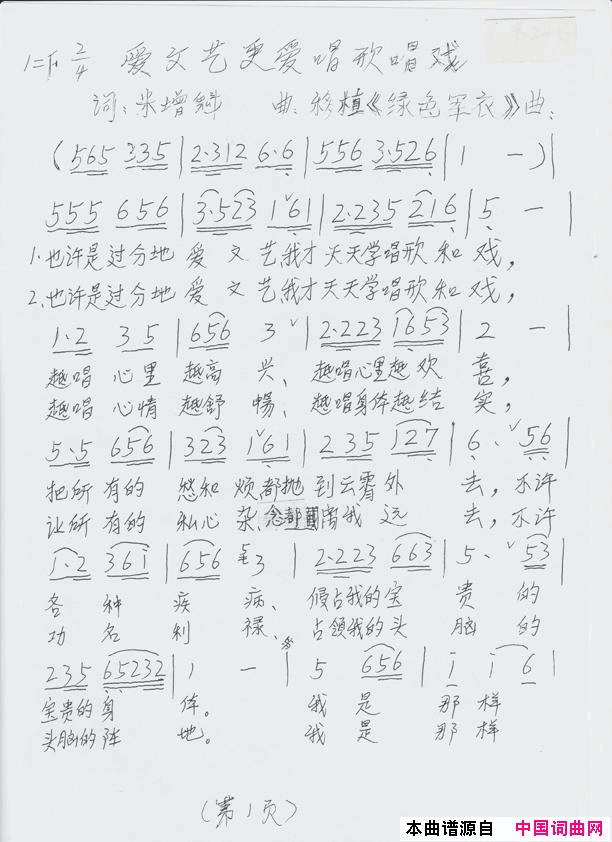 1=F 2/4 爱文艺更爱唱歌唱戏
词:米增魁 曲:移植《绿色军衣》曲:
(565 335|2·312 6·6|556 3·526|1 —)|
555 656|3·523 1˅61|2·235 216|5 —|
1.也许是过分地爱文艺,我才天天学唱歌和戏,
2.也许是过分地爱文艺,我才天天学唱歌和戏,
1·2 35|656 3˅|2·223 1653|2 —|
越唱心里越高兴、越唱心里越欢喜,
越唱心情越舒暢、越唱身体越结实,
5·5 656|323 1˅61|235 127|6·˅56|
把所有的愁和烦都抛到云霄外去,不许
让所有的私心杂念都离我远去,不许
1·2 361|656 3|2·223 663|5·˅53|
各种疾病、侵占我的宝贵的
功名利禄、占领我的头脑的
235 65232|1 —|5 656|i i6|
宝贵的身体。我是那样
头脑的阵地。我是那样
(第1页)
本曲谱源自 中国词曲网